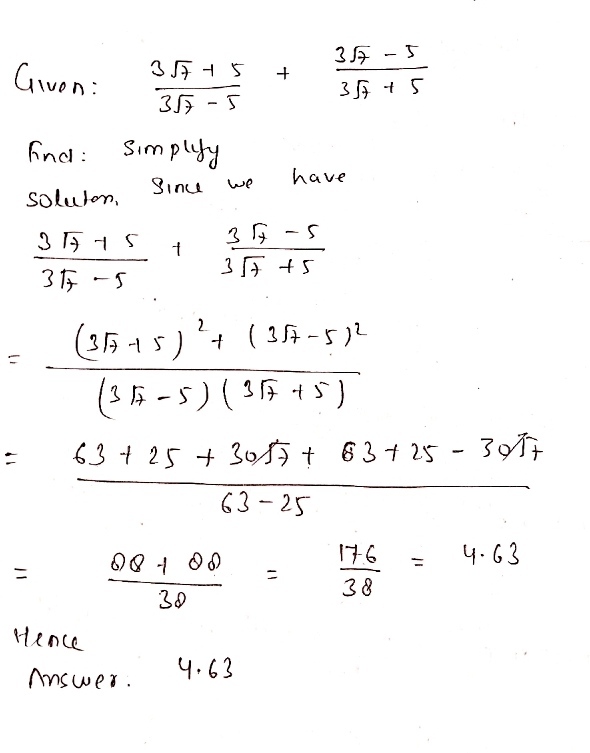 Given: (3√7 + 5)/(3√7 - 5) + (3√7 - 5)/(3√7 + 5)
find: simplify
soluton, since we have
(3√7 + 5)/(3√7 - 5) + (3√7 - 5)/(3√7 + 5)
= ((3√7 + 5)² + (3√7 - 5)²)/((3√7 - 5)(3√7 + 5))
= (63 + 25 + 30√7 + 63 + 25 - 30√7)/(63 - 25)
= (88 + 88)/38 = 176/38 = 4.63
Hence
Answer. 4.63